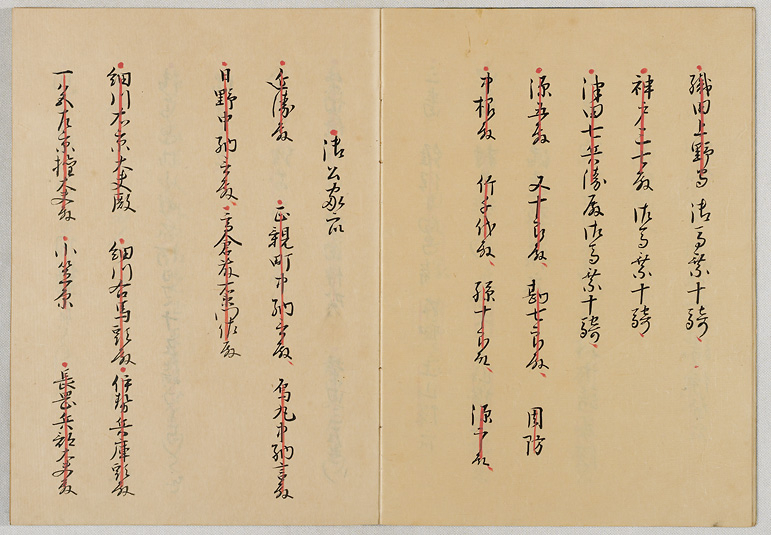 織田上野守 御馬乗十騎
神戸三七殿 御馬乗十騎
津田七兵衛殿 御馬乗十騎
源五殿 又十郎殿 勘七郎殿 周防
中根殿 竹千代殿 孫十郎殿 源三殿
御公家衆
近衛殿 正親町中納言殿 烏丸中納言殿
日野中納言殿 高倉藤右衛門佐殿
細川右京大夫殿 細川右馬頭殿 伊勢兵庫頭殿
一色左京権大夫殿 小笠原 長岡兵部大夫殿